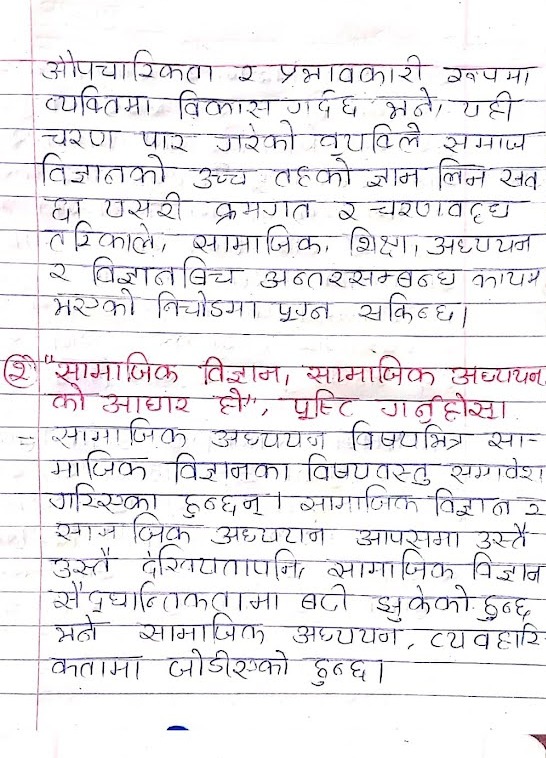 औपचारिकता र प्रभावकारी रूपमा
व्यक्तिमा विकास गर्दछ भने, यही
चरण पार गरेको व्यक्तिले समाज
विज्ञानको उच्च तहको ज्ञान लिन सक
छ। यसरी क्रमगत र चरणवद्ध
तरिकाले, सामाजिक, शिक्षा, अध्ययन
र विज्ञानबिच अन्तरसम्बन्ध कायम
भएको निचोडमा पुग्न सकिन्छ।
२ "सामाजिक विज्ञान, सामाजिक अध्ययन
को आधार हो", पुष्टि गर्नुहोस।
⇒ सामाजिक अध्ययन विषयभित्र सा-
माजिक विज्ञानका विषयवस्तु समावेश
गरिएका हुन्छन्। सामाजिक विज्ञान र
सामाजिक अध्ययन आपसमा उस्तै
उस्तै देखियतापनि, सामाजिक विज्ञान
सैद्धान्तिकतामा बढी झुकेको हुन्छ
भने सामाजिक अध्ययन, व्यवहारि-
कतामा जोडीएको हुन्छ।